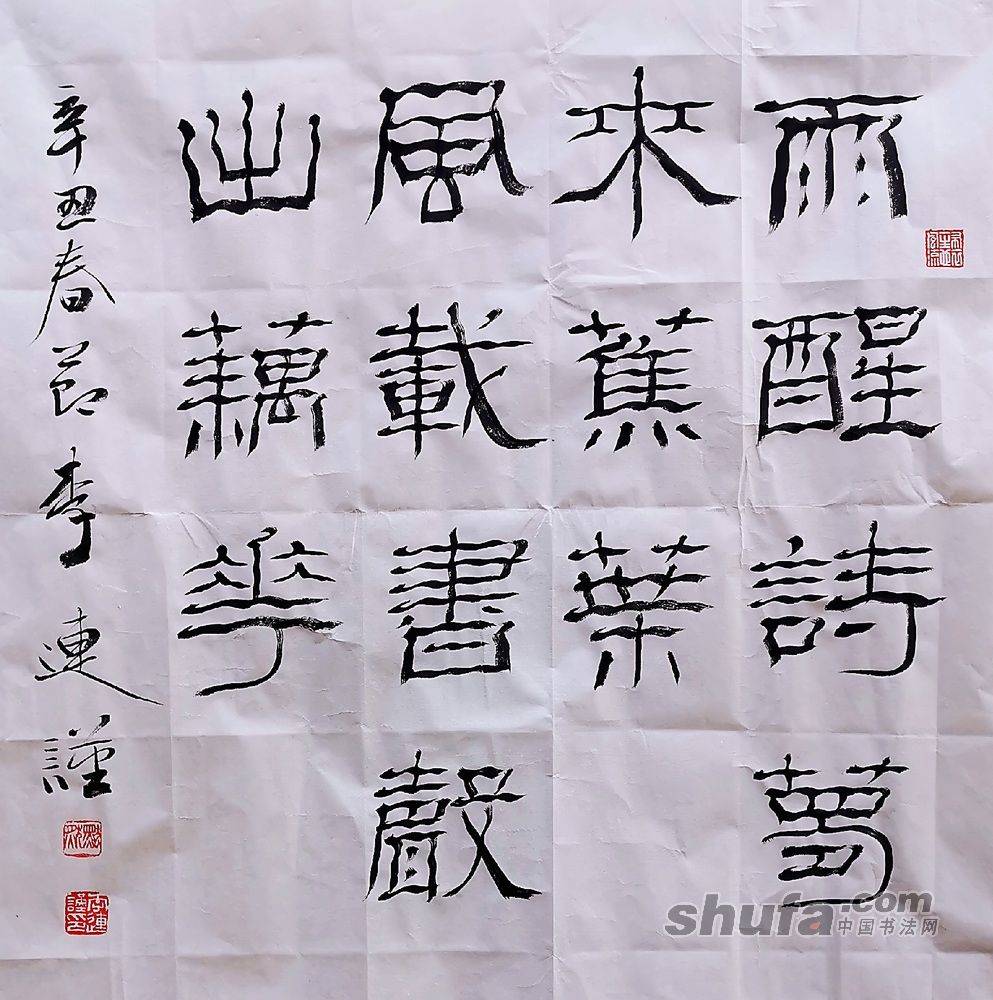 雨醒詩夢
來蕉葉
風載書聲
出藕花
辛丑春節李連謹
shufa.com
中国书法网